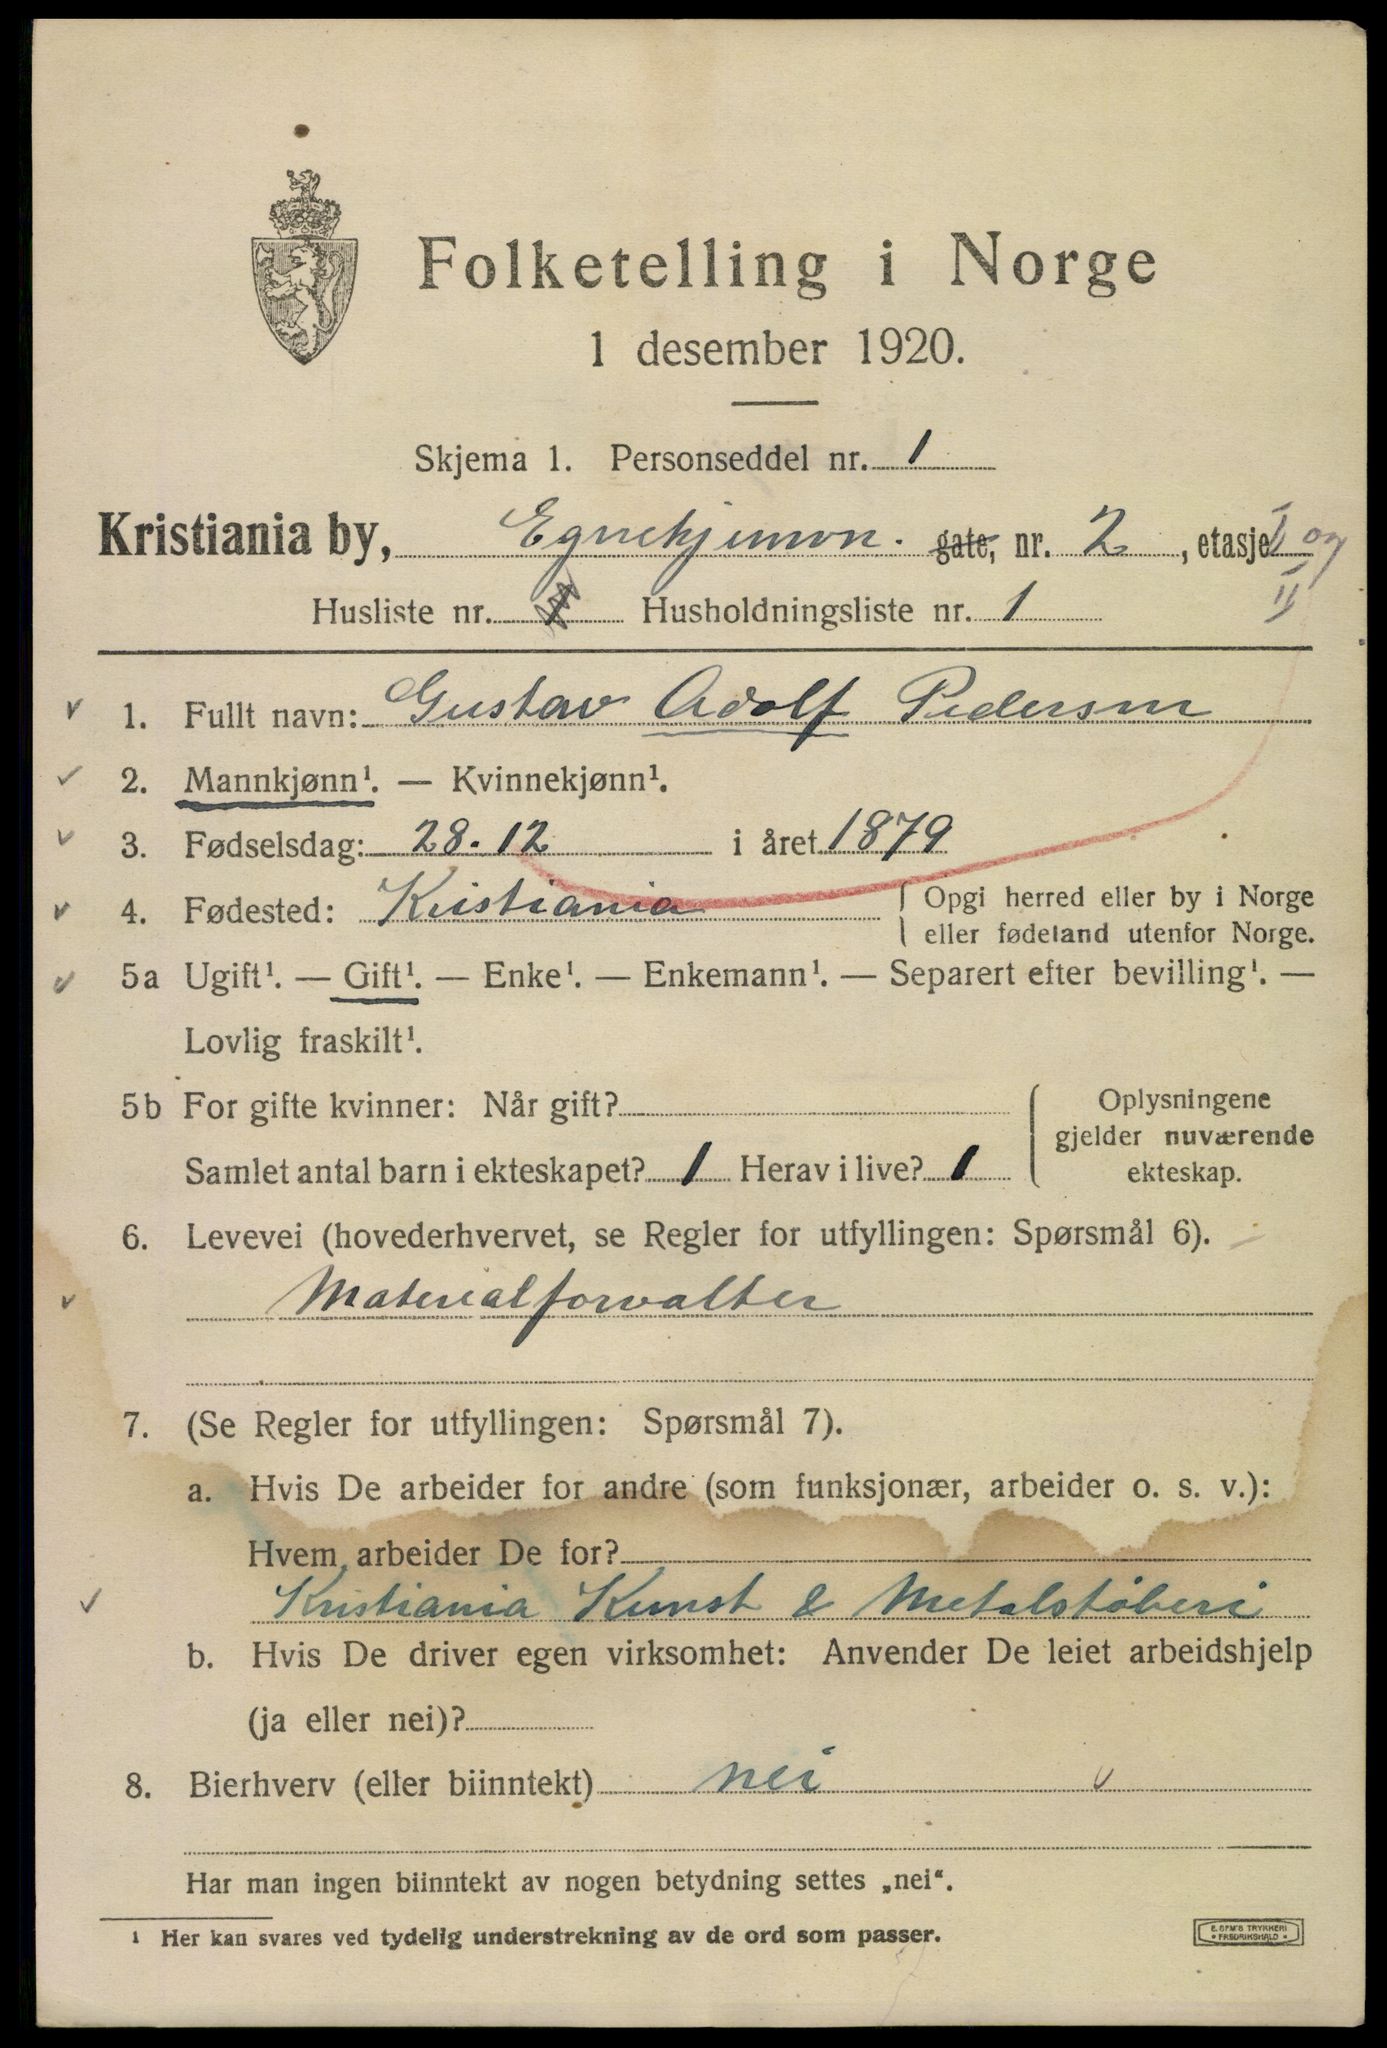 Folketelling i Norge
1 desember 1920.
Skjema 1. Personseddel nr. 1
Kristiania by, Egnehjemvn. gate, nr. 2, etasje I og
II
Husliste nr. Husholdningsliste nr. 1
1. Fullt navn: Gustav Adolf Pedersen
2. Mannkjønn¹. — Kvinnekjønn¹.
3. Fødselsdag: 28.12 i året 1879
4. Fødested: Kristiania Opgi herred eller by i Norge
eller fødeland utenfor Norge.
5a Ugift¹. — Gift¹. — Enke¹. — Enkemann¹. — Separert efter bevilling¹. —
Lovlig fraskilt¹.
5b For gifte kvinner: Når gift? Oplysningene
gjelder nuværende
Samlet antal barn i ekteskapet? 1 Herav i live? 1 ekteskap.
6. Levevei (hovederhvervet, se Regler for utfyllingen: Spørsmål 6).
Materialforvalter
7. (Se Regler for utfyllingen: Spørsmål 7).
a. Hvis De arbeider for andre (som funksjonær, arbeider o. s. v.):
Hvem arbeider De for?
Kristiania Kunst & Metalstøberi
b. Hvis De driver egen virksomhet: Anvender De leiet arbeidshjelp
(ja eller nei)?
8. Bierhverv (eller biinntekt) nei
Har man ingen biinntekt av nogen betydning settes „nei“.
¹ Her kan svares ved tydelig understrekning av de ord som passer.
E. SEM'S TRYKKERI
• FREDRIKSHALD •